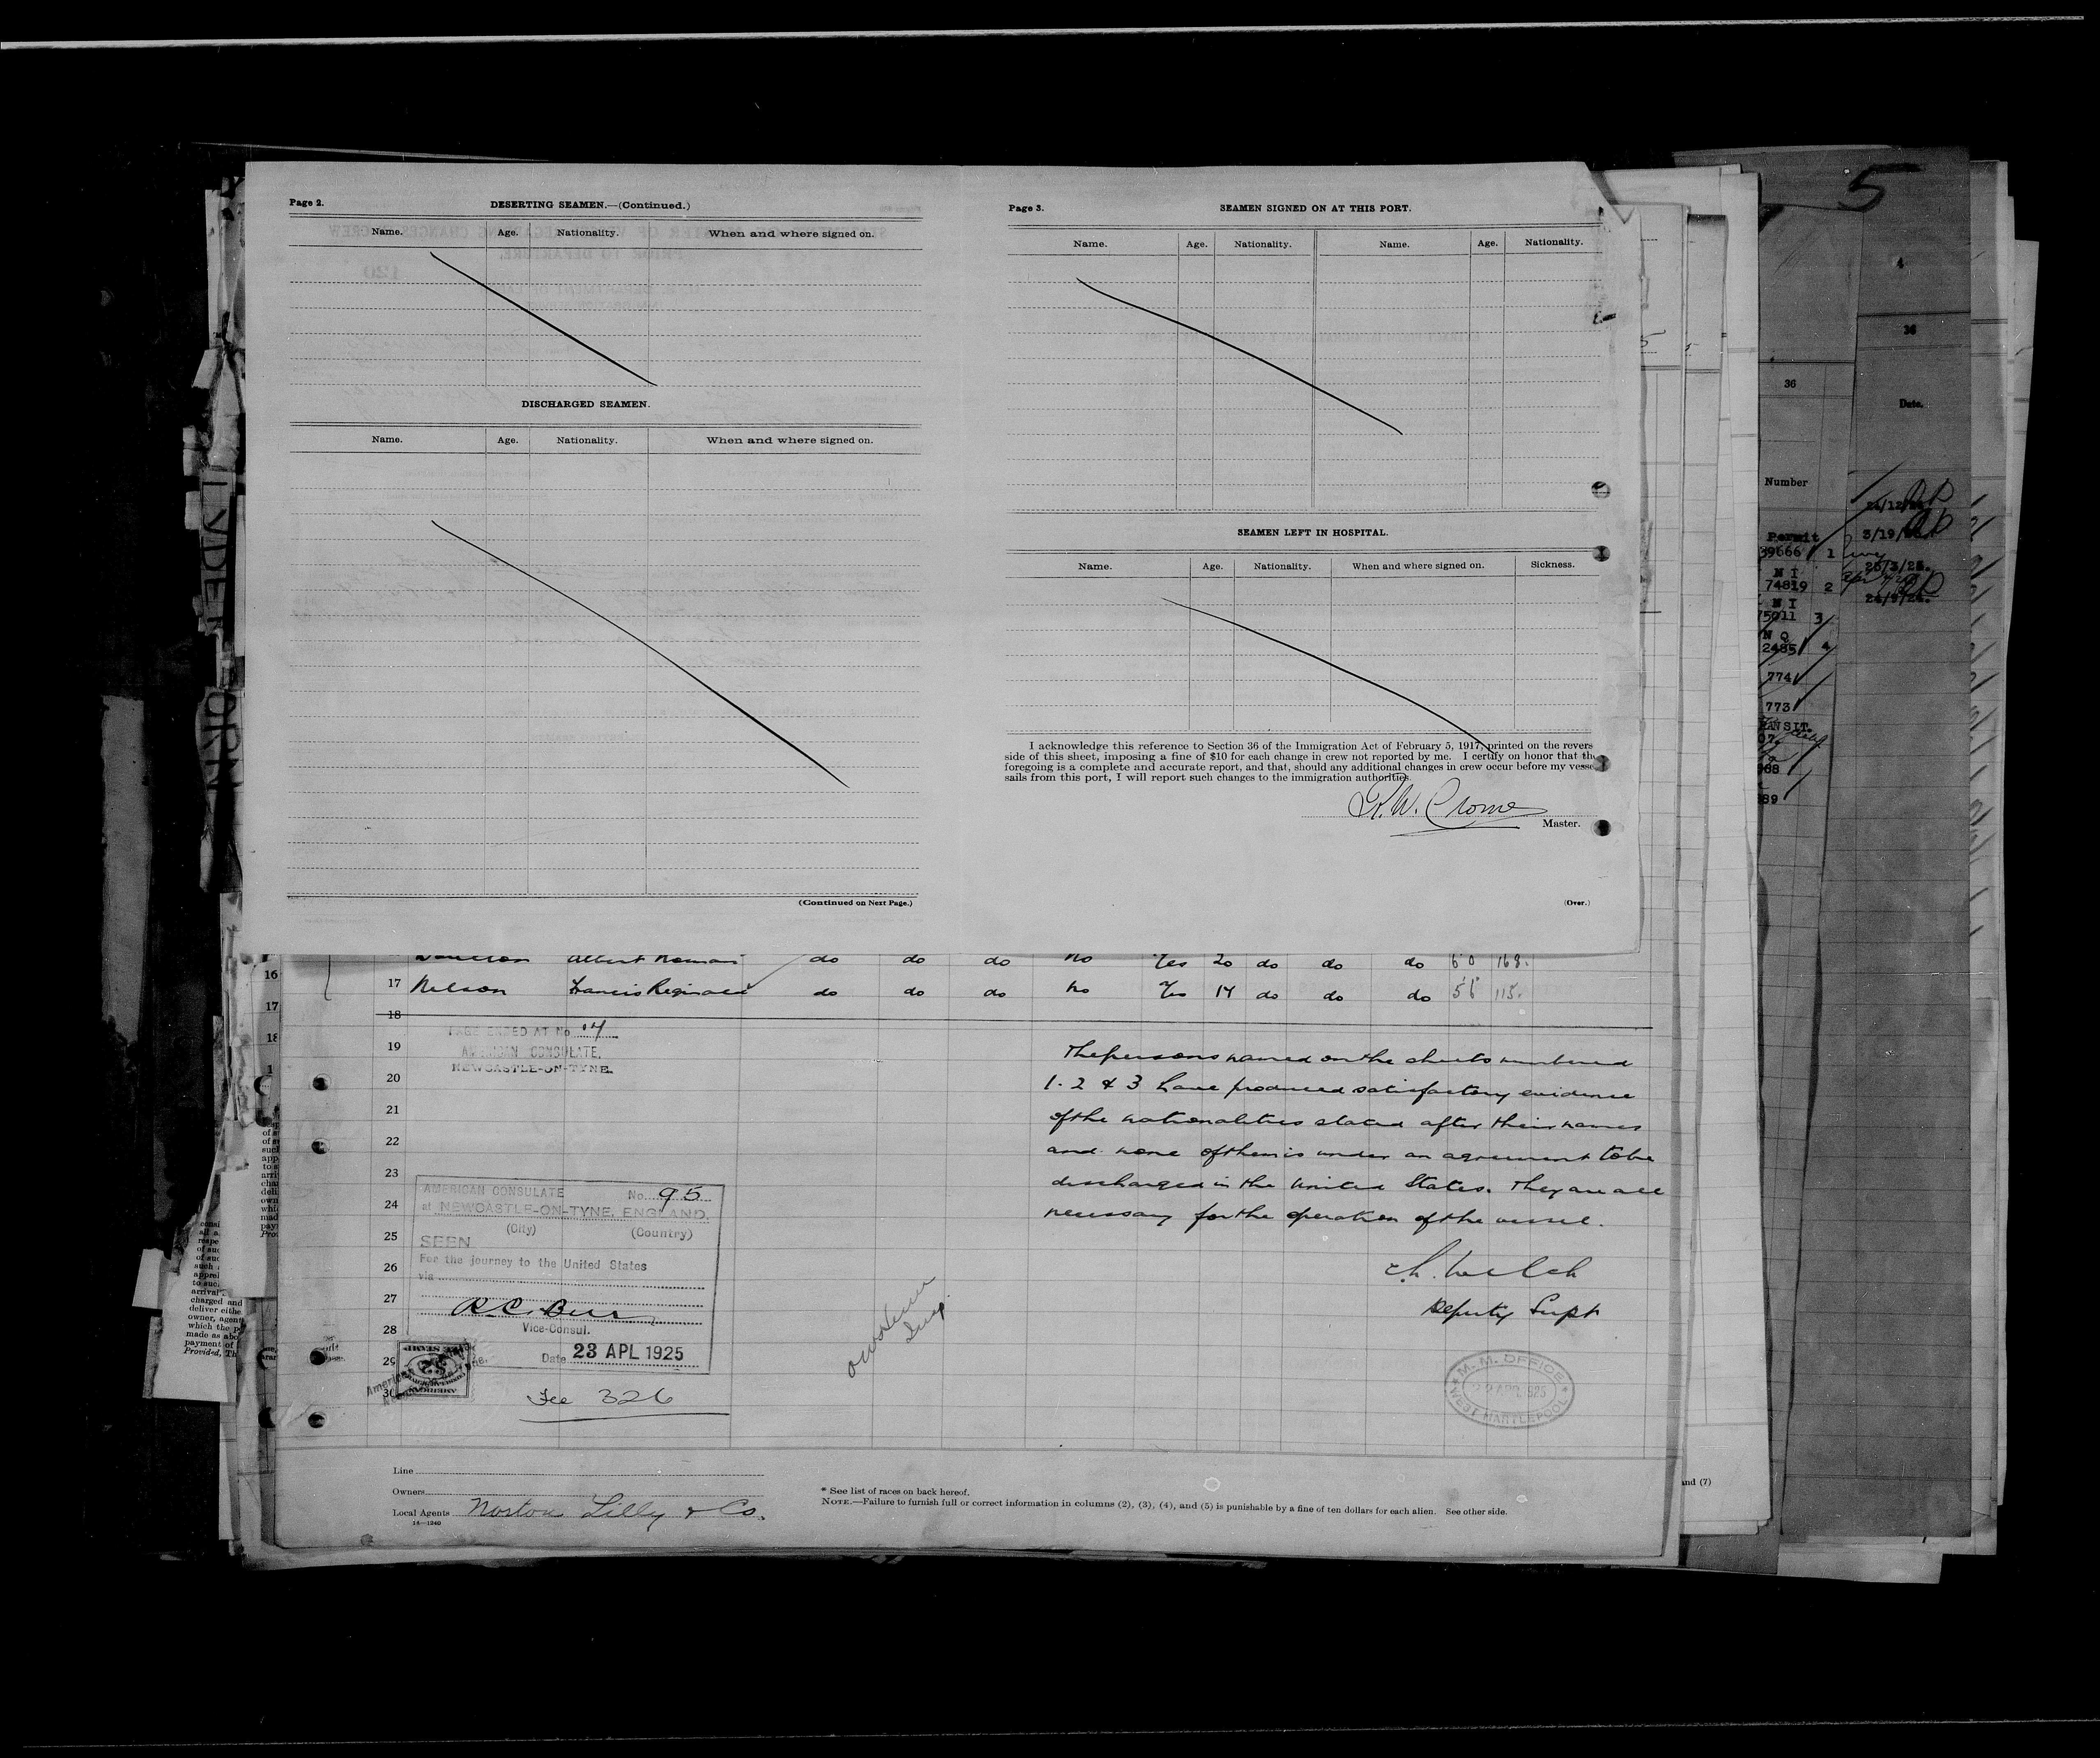 Page 2.
DESERTING SEAMEN.—(Continued.)
Name. Age. Nationality. When and where signed on.
DISCHARGED SEAMEN.
Name. Age. Nationality. When and where signed on.
(Continued on Next Page.)
Page 3.
SEAMEN SIGNED ON AT THIS PORT.
Name. Age. Nationality. Name. Age. Nationality.
SEAMEN LEFT IN HOSPITAL.
Name. Age. Nationality. When and where signed on. Sickness.
I acknowledge this reference to Section 36 of the Immigration Act of February 5, 1917, printed on the revers
side of this sheet, imposing a fine of $10 for each change in crew not reported by me. I certify on honor that the
foregoing is a complete and accurate report, and that, should any additional changes in crew occur before my vesse
sails from this port, I will report such changes to the immigration authorities.
W. Crome
Master.
(Over.)
5
4
36
36
Date.
Number
Permit
39666 1
3/19/
N I
74819 2
N I
75011 3
N Q
2485 4
774
773
Albert Norman do do do No Yes 20 do do do
17 Nelson Francis Reginald do do do No Yes 17 do do do 5 6 115.
18
19
20
21
22
23
24
25
26
27
28
29
30
16
17
AMERICAN CONSULATE,
NEWCASTLE-ON-TYNE.
The persons named on the sheets numbered
1. 2 & 3 have produced satisfactory evidence
of the nationalities stated after their names
and none of them is under an agreement to be
discharged in the United States. They are all
necessary for the operation of the vessel.
Welch
Deputy Supt
M. M. OFFICE
WEST HARTLEPOOL
AMERICAN CONSULATE No. 95
at NEWCASTLE-ON-TYNE, ENGLAND.
(City) (Country)
SEEN
For the journey to the United States
via
Vice-Consul.
Date 23 APL 1925
Fee 326
Line
Owners
Local Agents Norton Lilly & Co.
14—1240
* See list of races on back hereof.
NOTE.—Failure to furnish full or correct information in columns (2), (3), (4), and (5) is punishable by a fine of ten dollars for each alien. See other side.
and (7)
charged and
deliver eithe
owner, agent
which the p
made as abo
payment of
Provided, Th